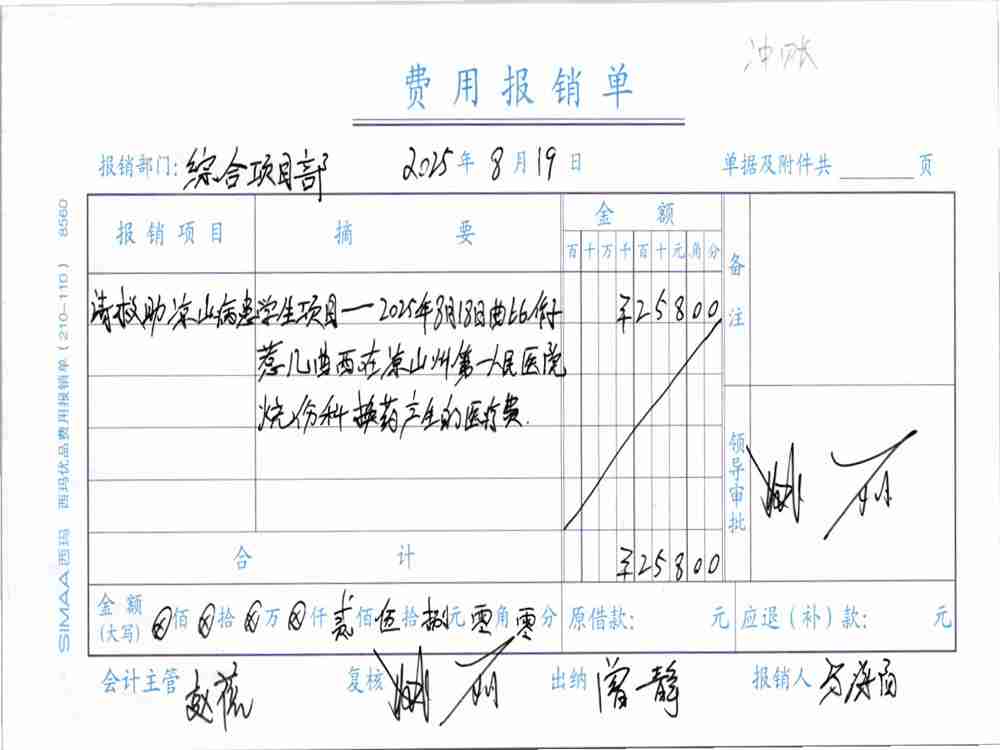 冲账
费用报销单
报销部门: 综合项目部 2025年8月19日 单据及附件共 页
报销项目 摘要 金额 备注
百十万千百十元角分
请救助凉山病患学生项目—2025年8月18日曲比仔 ¥25800
惹几曲西在凉山州第一人民医院
烧伤科换药产生的医疗费.
领导审批
合计 ¥25800
金额(大写) ⊗佰⊗拾⊗万⊗仟贰佰伍拾捌元零角零分 原借款: 元 应退(补)款: 元
会计主管 复核 出纳 曾静 报销人
SIMAA西玛 西玛优品费用报销单(210—110) 8560